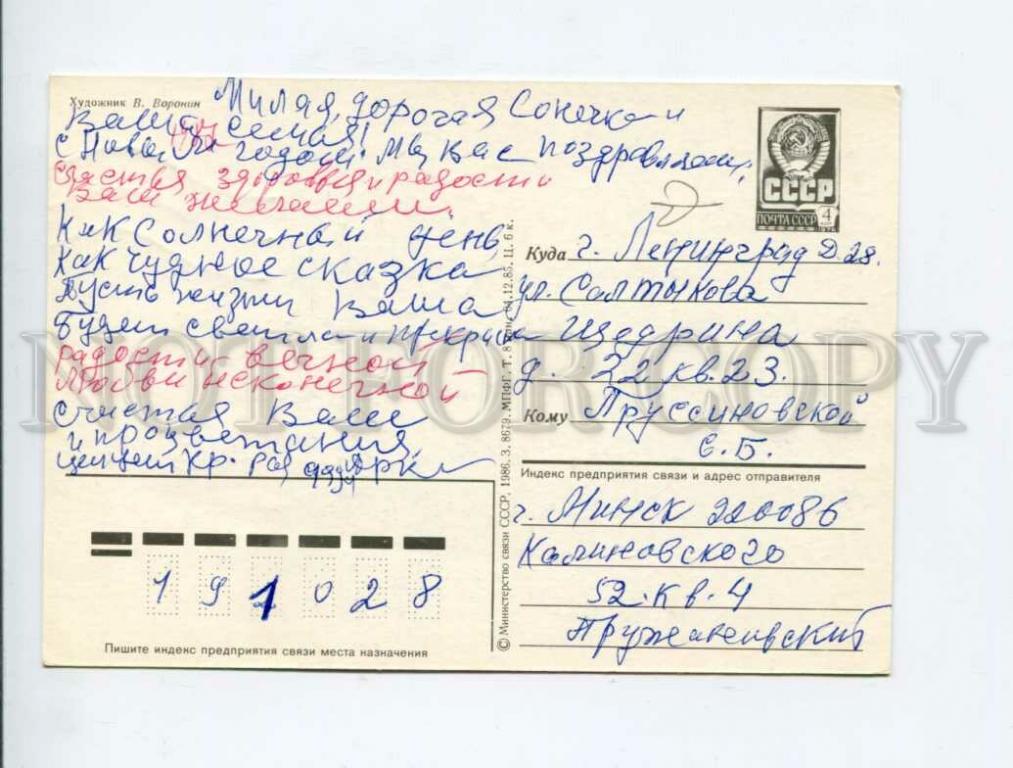 Художник В. Воронин
Милая, дорогая Сонечка и
Ваша семья!
С Новым годом! Мы Вас поздравляем,
счастья здоровья и радости
Вам желаем.
Как Солнечный день,
Как чудное сказка
Пусть жизнь Ваша
будет светла и прекрасна
радости вечной
любви несконечной
счастья Вам
и процветания
целуем кр.
СССР
ПОЧТА СССР 4
Куда г. Ленинград Д 28.
ул. Салтыкова
Щедрина
д. 22 кв. 23.
Кому Пруссиновской
С. Б.
Индекс предприятия связи и адрес отправителя
г. Минск 220086
Калиновского
52. кв. 4
Пружановский
191028
Пишите индекс предприятия связи места назначения
© Министерство связи СССР, 1986. З. 8679. МПФГ. Т. 12.85. Ц. 6 к.
NOT FOR COPY